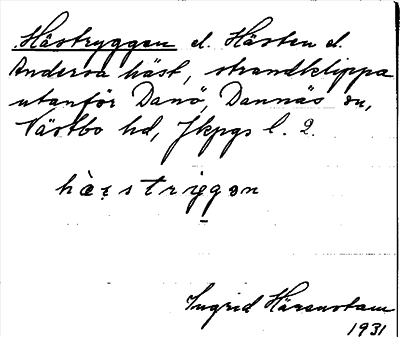 Hästryggen el. Hästen el.
Andersa häst, strandklippa
utanför Danö, Dannäs sn,
Västbo hd, Jkpgs l. 2.
hàstriggən
Ingrid Härenstam
1931